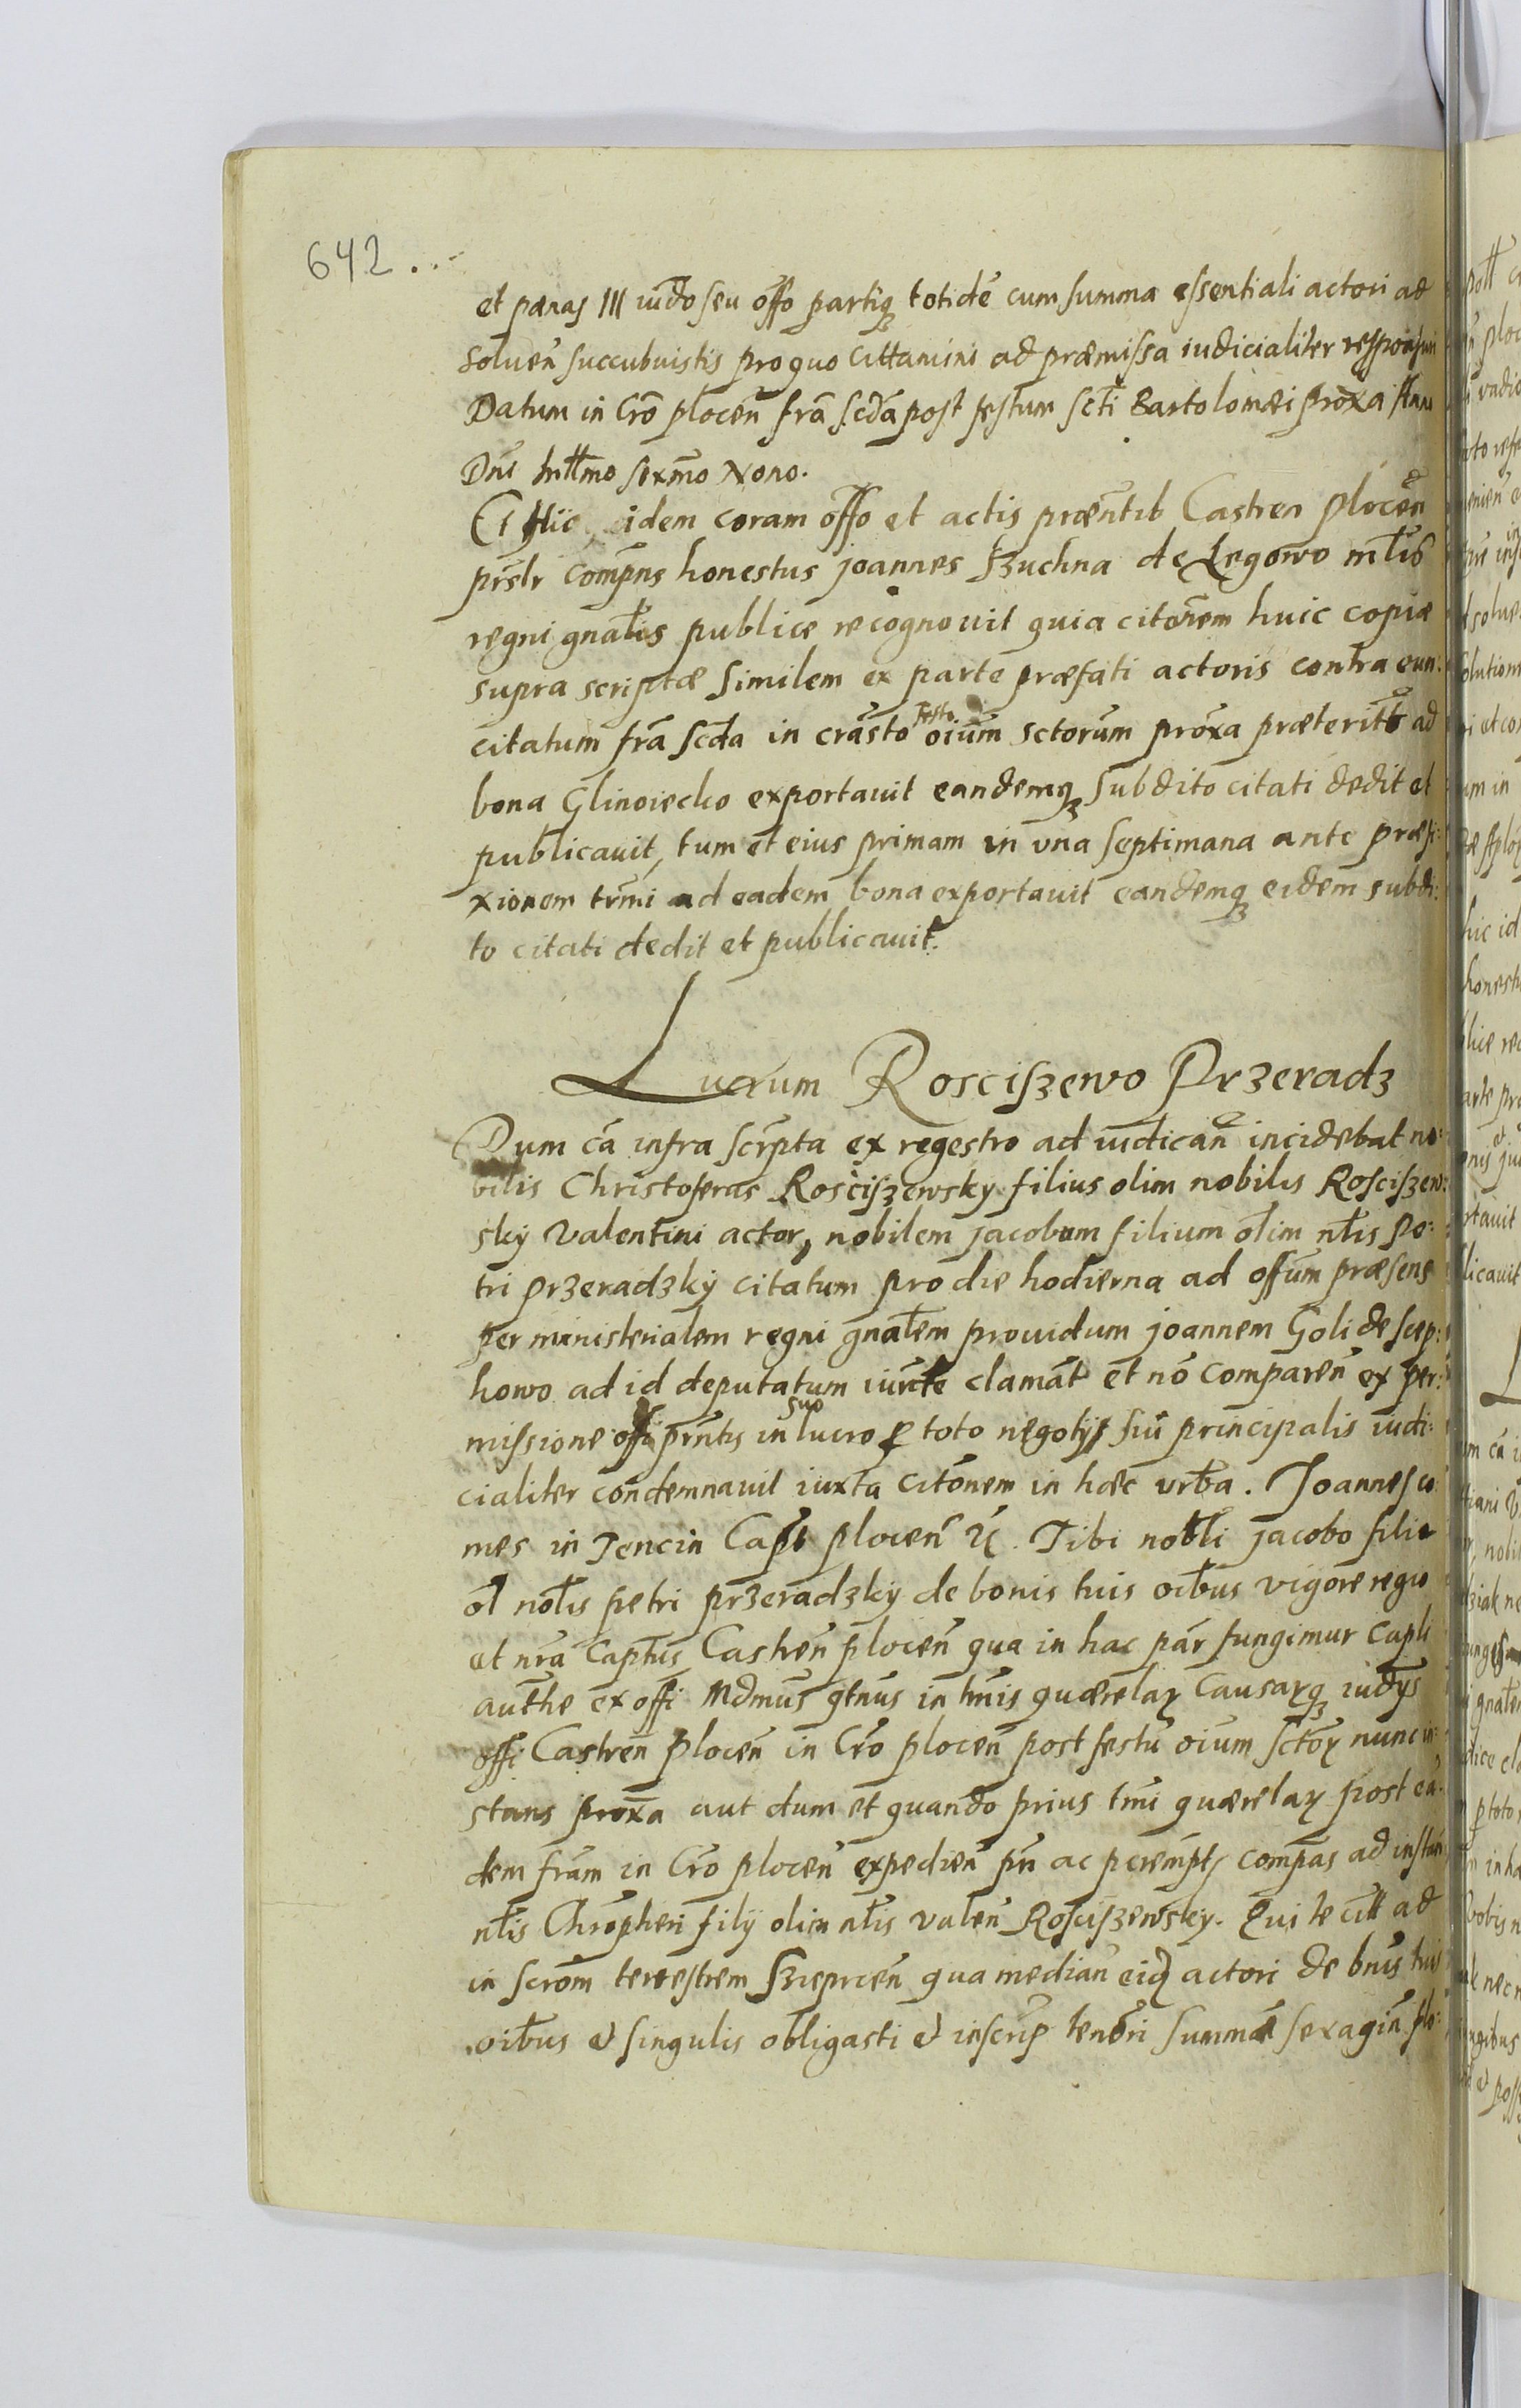 642..-
et pænas III iudo seu offo partiq totide cum summa essentiali actori ad
soluen succubuistis pro quo cittamini ad præmissa iudicialiter responsuri
Datum in Cro plocen fra scda post festum scti Bartolomæi proxa Anno
Dni millmo sexmo Nono.
Et Hic idem coram offo et actis præntib Castren plocen
prslr compns honestus joannes Szuchna de Legowo mtlis
regni gnalis publice recognouit quia citonem huic copiæ
supra scriptæ similem ex parte præfati actoris contra eun:
citatum fra scda in crasto festo oium sctorum proxa præterito ad
bona Glinoiecko exportauit eandemq subdito citati dedit et
publicauit, tum et eius primam in vna septimana ante præfi:
xionem trmi ad eadem bona exportauit eandemq eidem subdi:
to citati dedit et publicauit.
Lucrum Rosciszewo Przeradz
Dum ca infra scrpta ex regestro ad iudican incidebat no:
bilis Christoferus Rosciszewsky filius olim nobilis Rosciszew:
sky Valentini actor, nobilem jacobum filium olim nlis Pe:
tri Przeradzky citatum pro die hodierna ad offum præsens
per ministerialem regni gnalem prouidum joannem Goli de Scep:
howo ad id deputatum iuricte clamat et no comparen ex per:
missione offi prntis in suo lucro p toto negotys siu principalis iudi:
cialiter condemnauit iuxta citonem in hæc vrba. Joannes co:
mes in Tencin Capt plocen &c. Tibi nobli jacobo filio
ol nolis petri przeradzky de bonis tuis oibus vigore regio
et nra Captus Castren plocen qua in hac par fungimur Capli
authe ex offi Mdmus qtnus in tmis quærelaꝝ causaꝝq iudys
offi Castren Plocen in Cro plocen post festu oium sctoꝝ nunc in:
stans proxa aut dum et quando prius tmi quærelaꝝ post ea:
dem fram in Cro plocen expedien pn ac perempt compas ad instan
nlis Chropheri fily olim nlis valen Rosciszewsky. Qui te citt ad
in scrom terrestrem Szreprcen qua median eidq actori de bnis tuis
oibus et singulis obligasti et inscrip teneri summa sexagin flo: